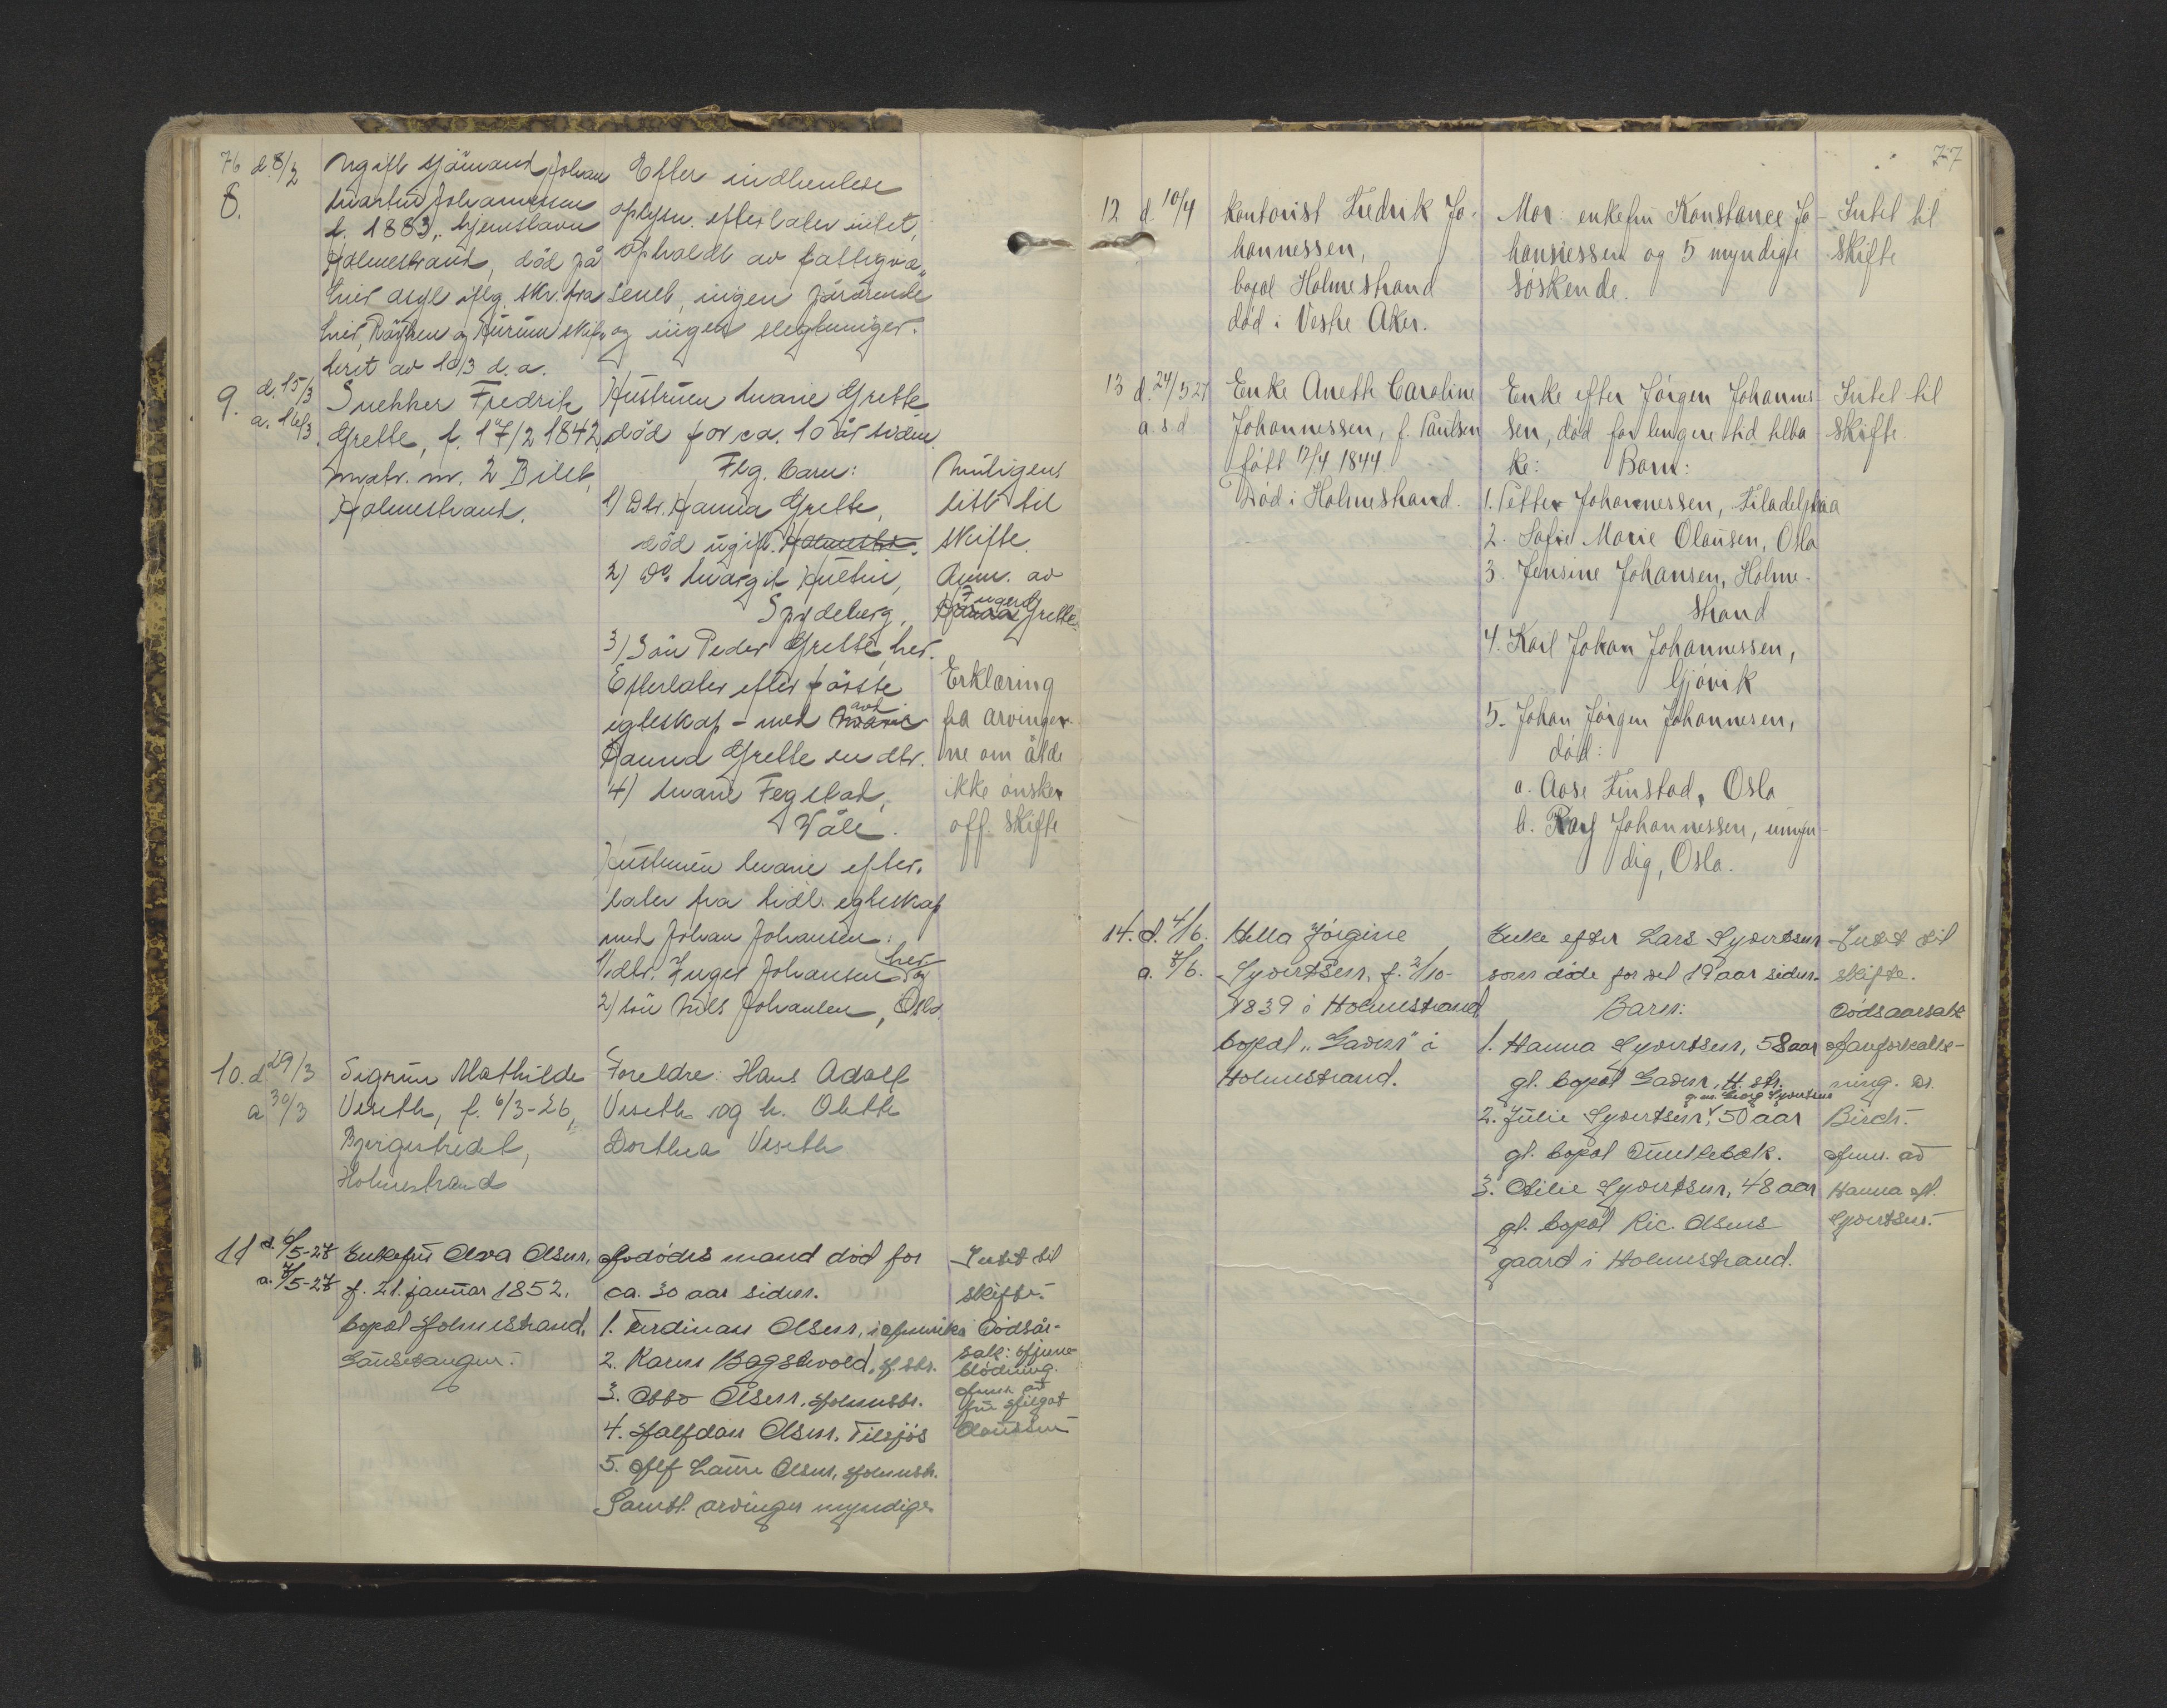 76 d. 8/2 Ugift sjömand Johan
8. Martin Johannessen
f. 1883, hjemstavn
Holmestrand, död på
Lier asyl iflg. skr. fra
Lier, Röyken og Hurum skif-
teret av 10/3 d.a.
Efter indhentede
oplysn. efterlater intet,
opholdt av fattigvæ-
senet, ingen pårörende
og ingen slegtninger.
9. d. 15/3 Snekker Fredrik
a. 16/3 Grette, f. 17/2 1842,
matr. nr. 2 B
Holmestrand.
Hustruen Marie Grette
död for ca. 10 år siden
Flg. barn:
1) Dtr. Hanna Grette,
död ugift. Holmestr.
2) Do. Margit Hultin,
Spydeberg,
3) Sön Peder Grette, her.
Efterlater efter förste
egteskap - med avd. Marie
Hanna Grette en dtr.
4) Marie Fegstad,
Våle.
Hustruen Marie efter-
later fra tidl. egteskap
med Johan Johansen:
1) dtr. Inger Johansen her og
2) sön Nils Johansen, Oslo.
Muligens
litt til
skifte.
Anm. av
Ingerd
Hanna Grette.
Erklæring
fra arvinger-
ne om at de
ikke ønsker
off. skifte
10. d. 29/3 Sigrun Mathilde
a. 30/3 Viseth, f. 6/3-26,
Bjergestredet,
Holmestrand
Foreldre: Hans Adolf
Viseth og h. Olette
Dorthea Viseth
11 d. 6/5-27 Enkefru Olava Olsen,
a. 7/5-27 f. 21. januar 1852.
bopæl Holmestrand,
Gausesangen.
Avdödes mand död for
ca. 30 aar siden.
1. Ferdinan Olsen, i Amerika
2. Karen Bagstevold, H.str.
3. Otto Olsen, Holmestr.
4. Halfdan Olsen, Tilsjös
5. Alf Laure Olsen, Holmestr.
Samtl. arvinger myndige
Intet til
skifte.
Dödsår-
sak: Hjerne-
blödning.
Anm. av
fru Hilgat
Olaussen
77
12 d. 10/4 Kontorist Fredrik Jo-
hannessen,
bopæl Holmestrand
död i Vestre Aker.
Mor: enkefru Konstance Jo-
hannessen og 5 myndige
söskende.
Intet til
skifte
13 d. 24/5 27 Enke Anette Caroline
a. s.d. Johannessen, f. Paulsen
født 17/4 1844
Död i Holmestrand.
Enke efter Jörgen Johannes-
sen, død for lengere tid tilba-
ke: Barn:
1. Petter Johannessen, Filadelphia
2. Sofie Marie Olausen, Oslo
3. Jensine Johansen, Holme-
strand
4. Karl Johan Johannessen,
Gjøvik
5. Johan Jörgen Johannesen,
död:
a. Aase Finstad, Oslo
b. Karl Johannessen, umyn-
dig, Oslo.
Intet til
skifte.
14. d. 4/6. Hella Jörgine
a. 7/6. Syvertsen, f. 2/10-
1839 i Holmestrand
bopæl "Gaden" i
Holmestrand.
Enke efter Lars Syvertsen
som døde for vel 19 aar siden.
Barn:
1. Hanna Syvertsen, 58 aar
gl. bopæl Gaden, H.str.
g.m. Georg Syvertsen
2. Julie Syvertsen, 50 aar
gl. bopæl Dunkebæk.
3. Otilie Syvertsen, 48 aar
gl. bopæl Ric. Olsens
gaard i Holmestrand.
Intet til
skifte.
Dödsaarsak
Aareforkalk-
ning. Dr.
Birch.
Anm. av
Hanna
Syvertsen.